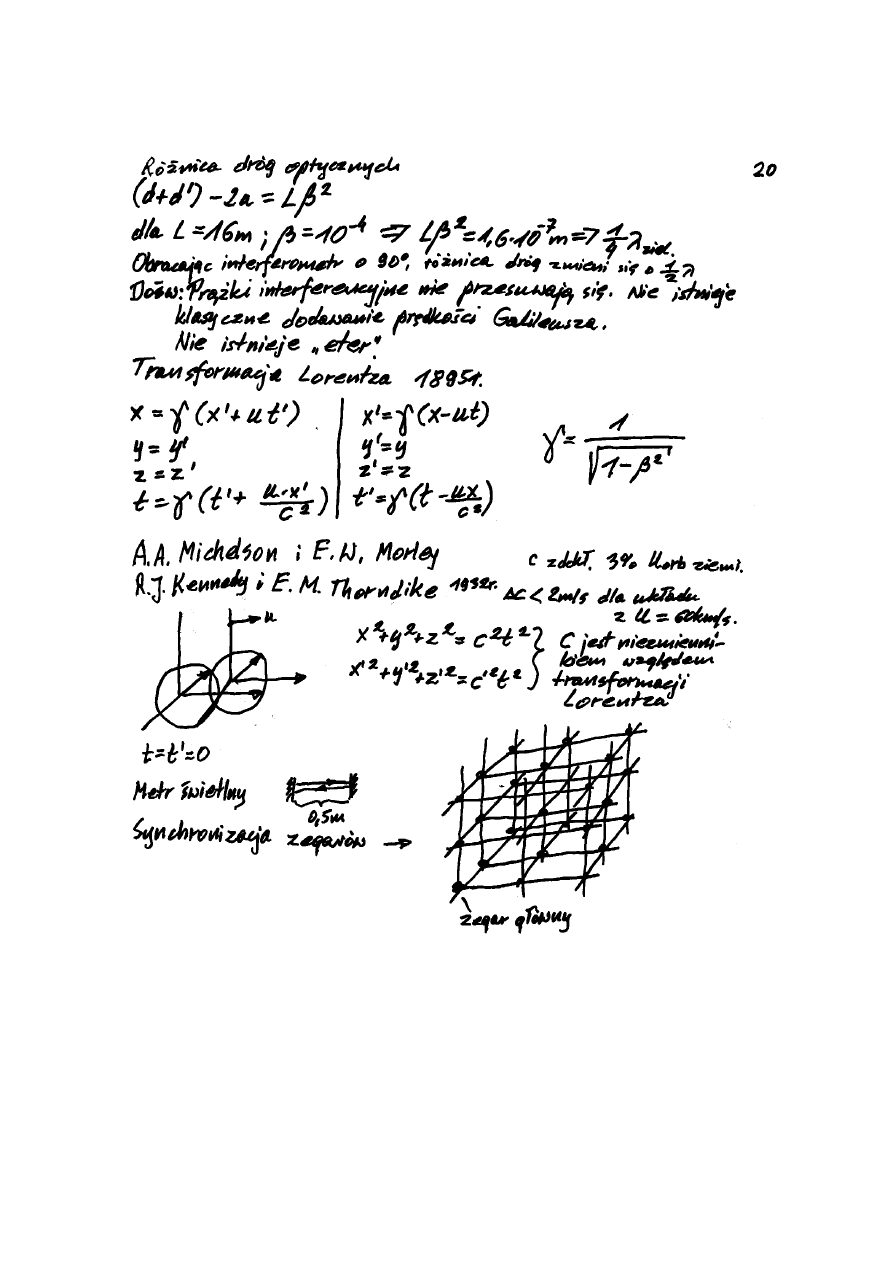 20
Różnica dróg optycznych
(d+d') - 2a = Lβ²
dla L = 16m ; β = 10⁻⁴ ⇒ Lβ² = 1,6·10⁻⁷m ⇒ 1/4 λ ziel.
Obracając interferometr o 90°, różnica dróg zmieni się o 1/2 λ
Dośw: Prążki interferencyjne nie przesuwają się. Nie istnieje
klasyczne dodawanie prędkości Galileusza.
Nie istnieje „eter".
Transformacja Lorentza 1895r.
x = γ(x' + ut') | x' = γ(x-ut)
y = y' | y' = y
z = z' | z' = z
t = γ(t' + u·x'/c²) | t' = γ(t - ux/c²)
γ = 1/√(1-β²)
A.A. Michelson i E.W. Morley
c z dokł. 3%
ziemi.
R.J. Kennedy i E.M. Thorndike 1932r.
Δc < 2m/s dla układu
z u = 60km/s.
u
x² + y² + z² = c²t²
x'² + y'² + z'² = c'²t²
C jest niezmienni-
kiem względem
transformacji
Lorentza
t = t' = 0
Metr świetlny
0,5m
Synchronizacja zegarów →
zegar główny